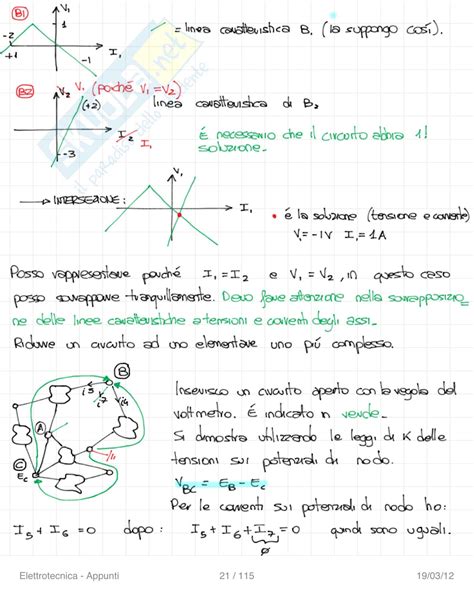 B1 V₁ = linea caratteristica B₁ (la suppongo così).
-2
+1 -1 I₁
B2 V₂ V₁ (poiché V₁=V₂)
(+2) linea caratteristica di B₂
I₂ I₁ É necessario che il circuito abbia 1!
soluzione.
-3
V₁
→ INTERSEZIONE: I₁ • é la soluzione (tensione e corrente)
V₁=-1V I₁=1A
Posso rappresentare poiché I₁=I₂ e V₁=V₂, in questo caso
posso sovrapporre tranquillamente. Devo fare attenzione nella sovrapposizio
ne delle linee caratteristiche a tensioni e correnti degli assi.
Ridurre un circuito ad uno elementare uno più complesso.
B
i5 i7 i6
Inserisco un circuito aperto con la regola del
voltmetro. É indicato in verde.
A
Si dimostra utilizzando le leggi di K delle
tensioni sui potenziali di nodo.
C
E_C
V_BC = E_B - E_C
Per le correnti sui potenziali di nodo ho:
I₅ + I₆ = 0 dopo: I₅ + I₆ + I₇ = 0 quindi sono uguali.
0
Elettrotecnica - Appunti 21 / 115 19/03/12